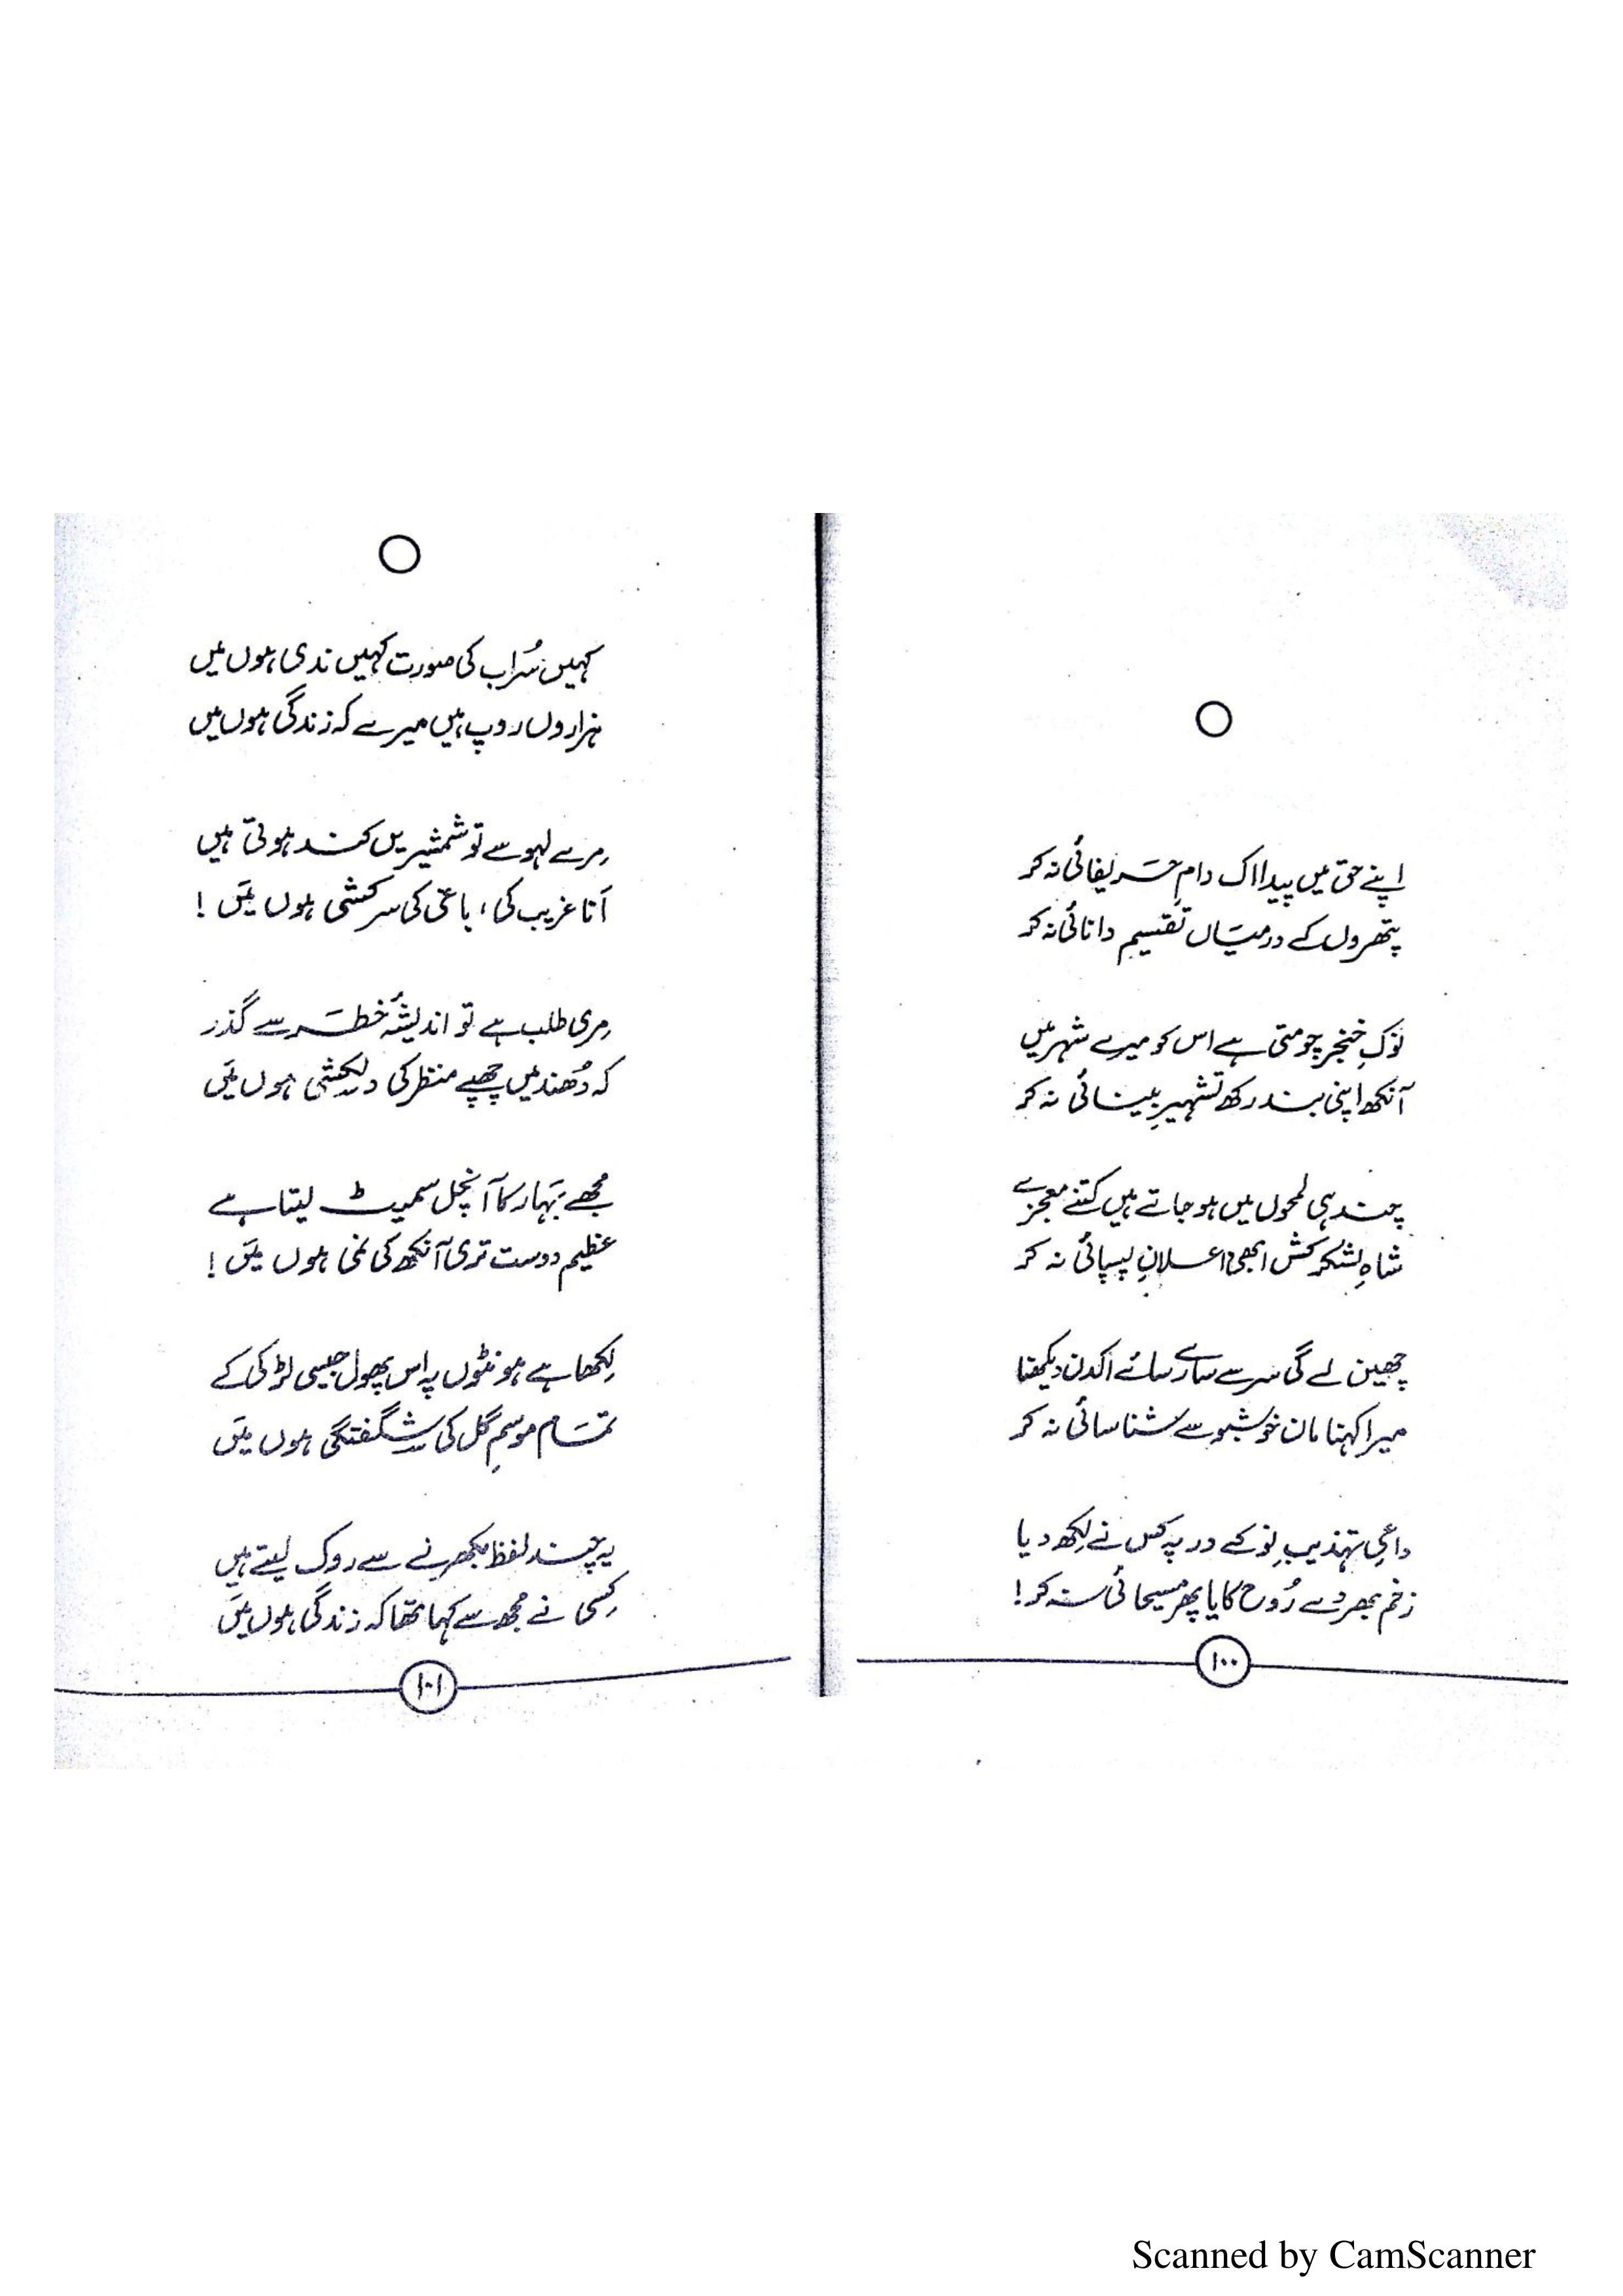 اپنے حق میں پیدا اک دامِ حَریفائی نہ کر
پتھروں کے درمیَاں تقسیم دانائی نہ کر
نوکِ خنجر چومتی ہے اس کو میرے شہر میں
آنکھ اپنی بند رکھ تشہیرِ بینائی نہ کر
چند ہی لمحوں میں ہو جاتے ہیں کتنے معجزے
شاہِ لشکر کش ابھی اعلانِ پسپائی نہ کر
چھین لے گی سر سے سارے سائے اک دن دیکھنا
میرا کہنا مان خوشبو سے شناسائی نہ کر
داعیِ تہذیبِ نو کے در پہ کس نے لکھ دیا
زخم بھر دے رُوح کا یا پھر مسیحائی نہ کر!
۱۰۰
کہیں سُراب کی صورت کہیں ندی ہوں مَیں
ہزاروں روپ ہیں میرے کہ زندگی ہوں مَیں
مِرے لہو سے تو شمشیریں کند ہوتی ہیں
اَنا غریب کی، باغی کی سرکشی ہوں مَیں!
مِری طلب ہے تو اندیشۂ خطَر سے گذر
کہ دُھند میں چھپے منظر کی دلکشی ہوں مَیں
مجھے بَہار کا آنچل سمیٹ لیتا ہے
عظیم دوست تری آنکھ کی نمی ہوں مَیں!
لِکھا ہے ہونٹوں پہ اس پھول جیسی لڑکی کے
تمَام موسمِ گل کی شگفتگی ہوں مَیں
یہ چند لفظ بکھرنے سے روک لیتے ہیں
کِسی نے مجھ سے کہا تھا کہ زندگی ہوں مَیں
۱۰۱
Scanned by CamScanner